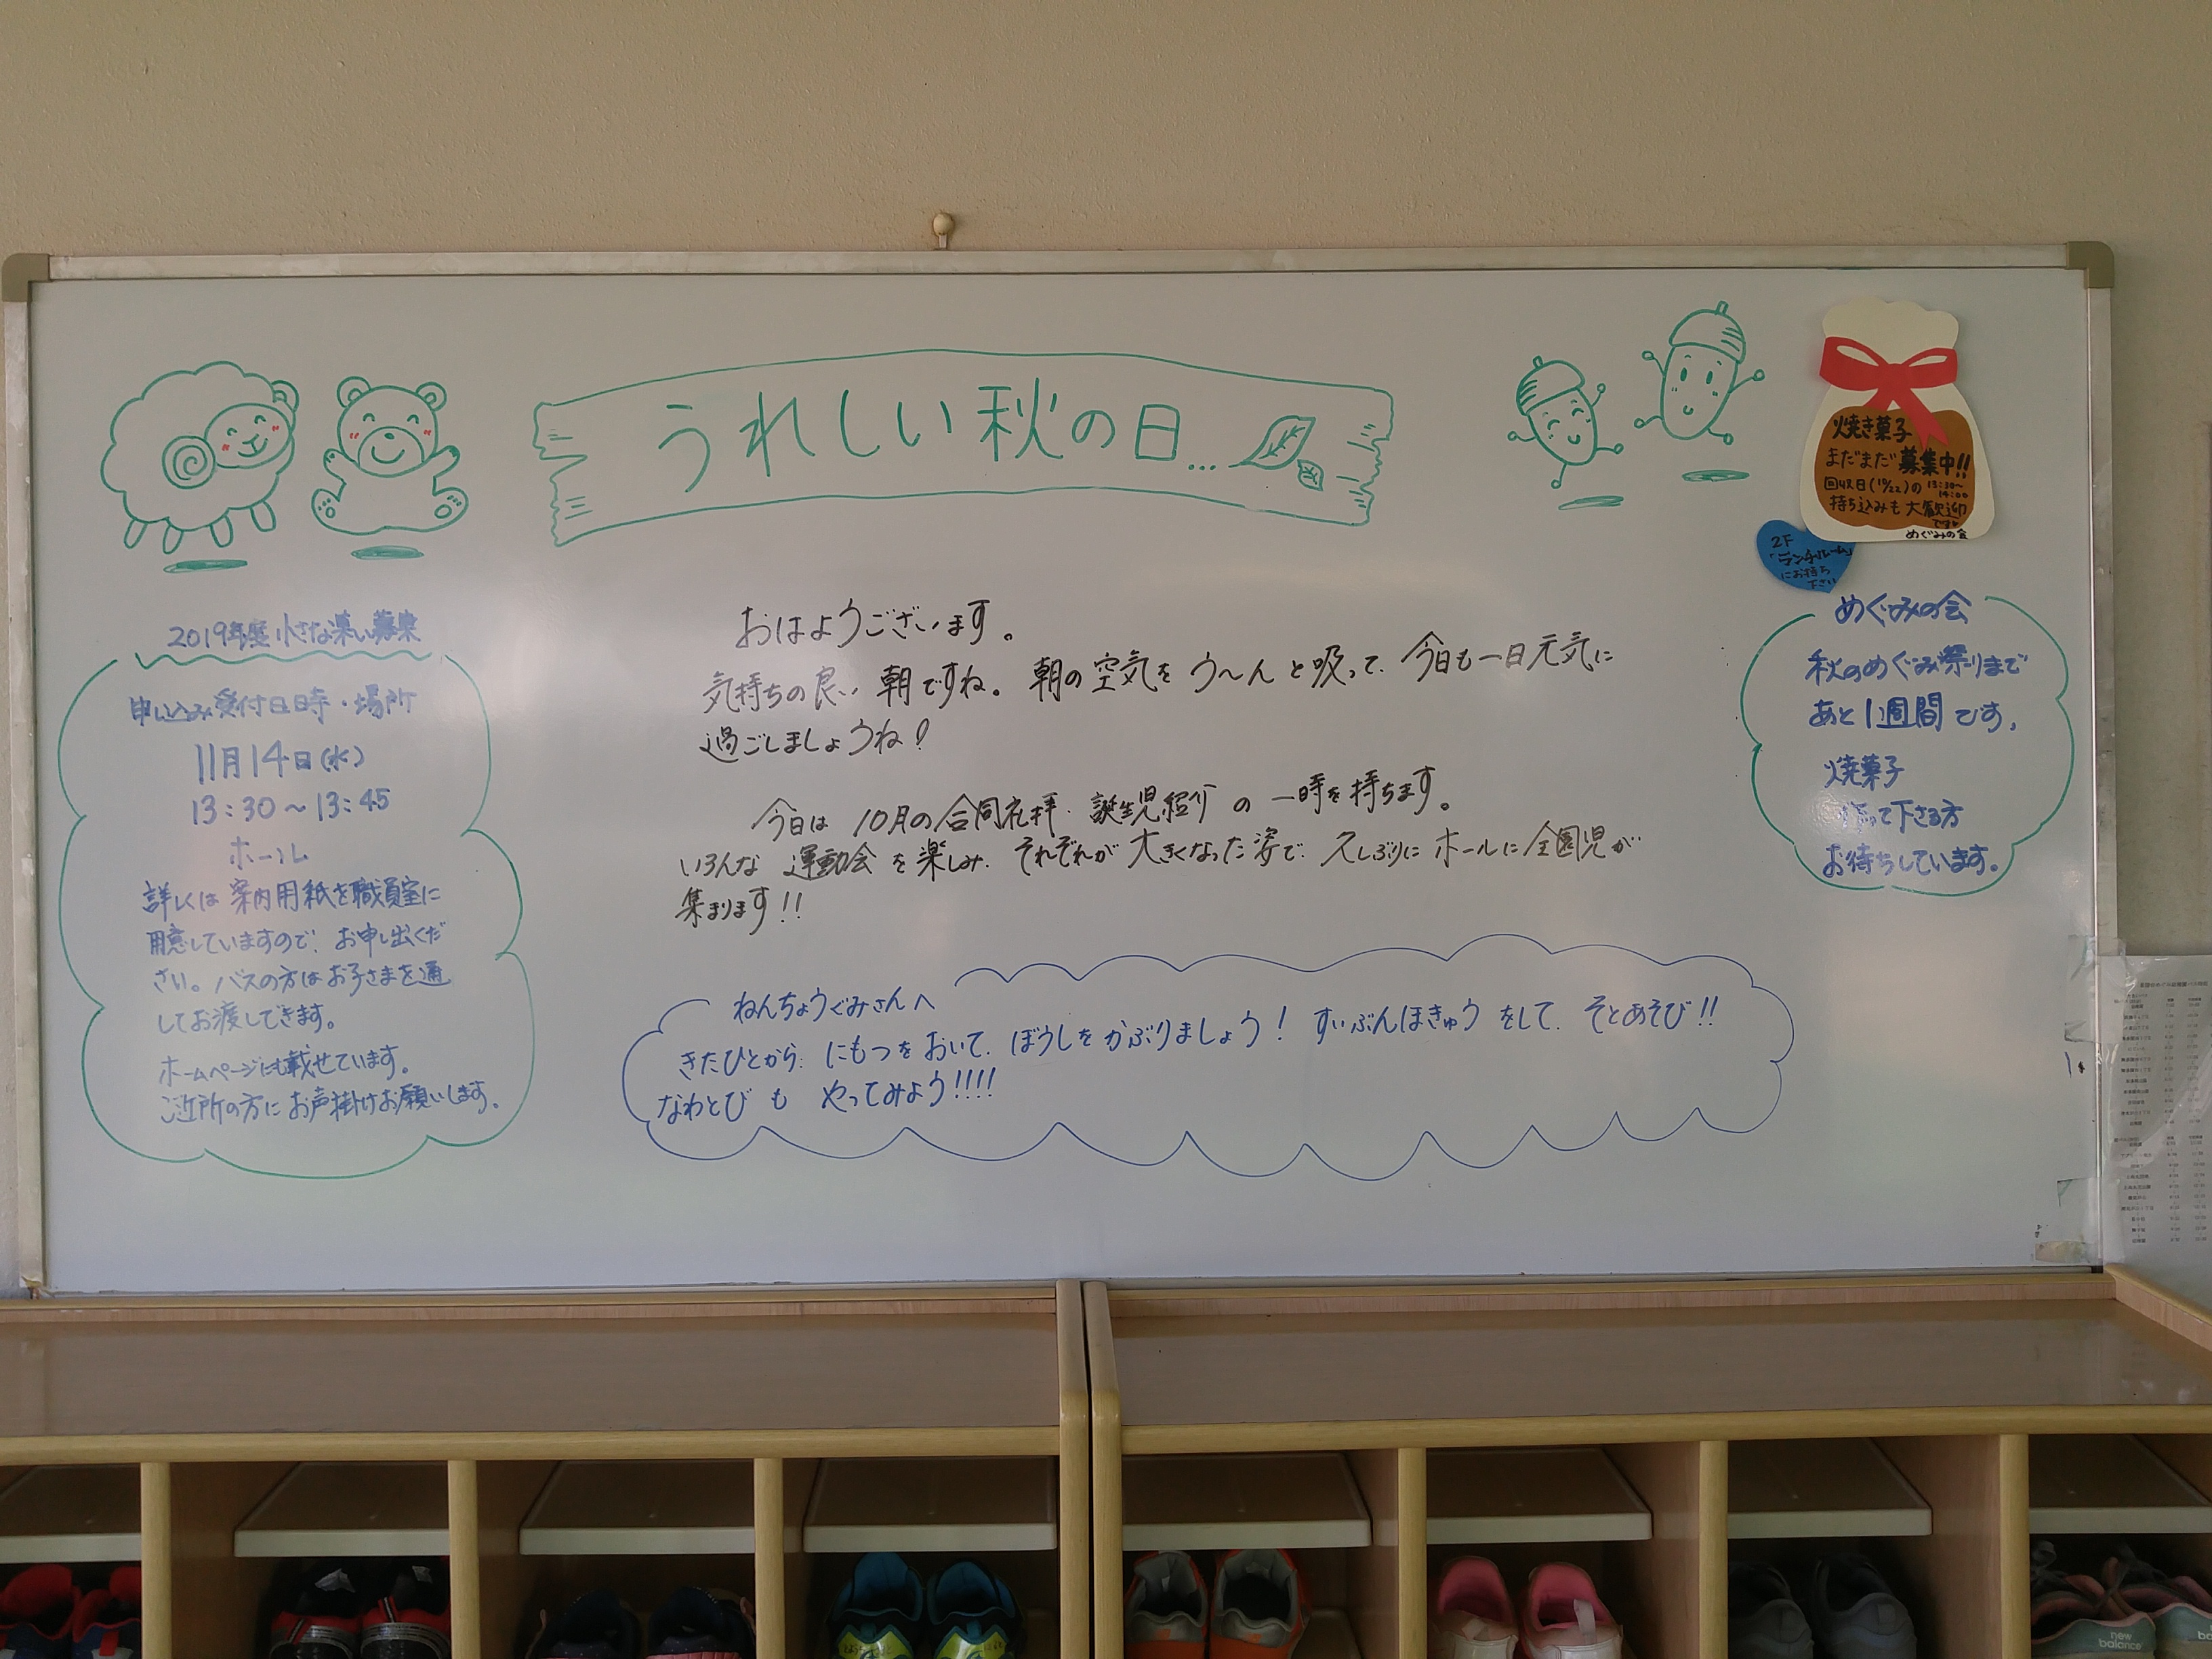 うれしい秋の日…
焼き菓子
まだまだ募集中!!
回収日(10/22)の 13:30〜
14:00
持ち込みも大歓迎
です
めぐみの会
2F
「ランチルーム」
にお持ち
下さい
2019年度 小さな集い募集
申し込み受付日時・場所
11月14日(水)
13:30〜13:45
ホール
詳しくは案内用紙を職員室に
用意していますので、お申し出くだ
さい。バスの方はお子さまを通
してお渡しできます。
ホームページにも載せています。
ご近所の方にお声掛けお願いします。
おはようございます。
気持ちの良い朝ですね。朝の空気をう〜んと吸って、今日も一日元気に
過ごしましょうね!
今日は 10月の合同礼拝・誕生児紹介の一時を持ちます。
いろんな運動会を楽しみ、それぞれが大きくなった姿で、久しぶりにホールに全園児が
集まります!!
ねんちょうぐみさんへ
きたひとから、にもつをおいて、ぼうしをかぶりましょう! すいぶんほきゅうをして、そとあそび!!
なわとびも やってみよう!!!!
めぐみの会
秋のめぐみ祭りまで
あと1週間です。
焼菓子
作って下さる方
お待ちしています。
new
balance